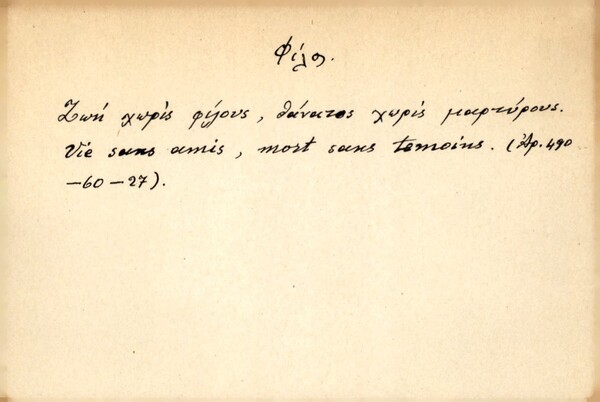 Φίλος.
Ζωή χωρίς φίλους, θάνατος χωρίς μαρτύρους.
Vie sans amis, mort sans temoins. (Ἀρ. 490
—60—27).